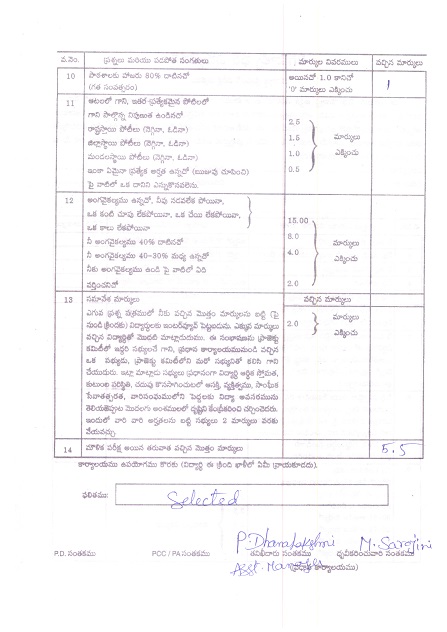 వ.నెం. ప్రశ్నలు మరియు పరిపోత సంగతులు మార్కుల వివరములు వచ్చిన మార్కులు
10 పాఠశాలకు హాజరు 80% దాటినచో అయినచో 1.0 కానిచో 1
(గత సంవత్సరం) '0' మార్కులు ఎక్కించు
11 ఆటలలో గాని, ఇతర ప్రత్యేకమైన పోటీలలో
గాని పాల్గొన్న నిపుణత ఉండినచో 2.5
రాష్ట్రస్థాయి పోటీలు (నెగ్గినా, ఓడినా) 1.5 మార్కులు
జిల్లాస్థాయి పోటీలు (నెగ్గినా, ఓడినా) 1.0 ఎక్కించు
మండలస్థాయి పోటీలు (నెగ్గినా, ఓడినా) 0.5
ఇంకా ఏమైనా ప్రత్యేక అర్హత ఉన్నచో (ఋజువు చూపించి)
పై వాటిలో ఒక దానిని ఎన్నుకొనవలెను.
12 అంగవైకల్యము ఉన్నచో, నీవు నడవలేక పోయినా,
ఒక కంటి చూపు లేకపోయినా, ఒక చేయి లేకపోయినా, 15.00
ఒక కాలు లేకపోయినా 8.0
నీ అంగవైకల్యము 40% దాటినచో 4.0 మార్కులు
నీ అంగవైకల్యము 40-30% మధ్య ఉన్నచో ఎక్కించు
నీకు అంగవైకల్యము ఉండి పై వాటిలో ఏది 2.0
వర్తించనిచో
13 సమావేశ మార్కులు వచ్చిన మార్కులు
ఎగువ ప్రశ్న పత్రములో నీకు వచ్చిన మొత్తం మార్కులను బట్టి (పై
నుండి క్రిందకు) విద్యార్థులకు ఇంటర్వ్యూవ్ పెట్టబడును. ఎక్కువ మార్కులు 2.0 మార్కులు
వచ్చిన విద్యార్థితో మొదట మాట్లాడుదురు. ఈ సంభాషణను ప్రాజెక్టు ఎక్కించు
కమిటీతో ఇద్దరి సభ్యులచే గాని, ప్రధాన కార్యాలయమునుండి వచ్చిన
ఒక సభ్యుడు, ప్రాజెక్టు కమిటీలోని మరో సభ్యునితో కలిసి గాని
చేయుదురు. ఇట్లా మాట్లాడు సభ్యులు ప్రధానంగా విద్యార్థి ఆర్థిక స్తోమత,
కుటుంబ పరిస్థితి, చదువు కొనసాగించుటలో ఆసక్తి, వ్యక్తిత్వము, సాంఘీక
సేవాతత్పరత, వారిసంఘములోని పెద్దలకు విద్యా అవసరమును
తెలియజెప్పుట మొదలగు అంశములలో దృష్టిని కేంద్రీకరించి చర్చించెదరు.
ఇందులో వారి వారి అర్హతలను బట్టి సభ్యులు 2 మార్కులు వరకు
వేయవచ్చు.
14 మౌళిక పరీక్ష అయిన తరువాత వచ్చిన మొత్తం మార్కులు 5.5
కార్యాలయము ఉపయోగము కొరకు (విద్యార్థి ఈ క్రింది ఖాళీలో ఏమీ వ్రాయకూడదు).
ఫలితము: Selected
P. Dhanalakshmi M. Sarojini
P.D. సంతకము PCC / PA సంతకము తనిఖీదారు సంతకము ధృవీకరించువారి సంతకము
Asst. Manager (ప్రధాన కార్యాలయము)